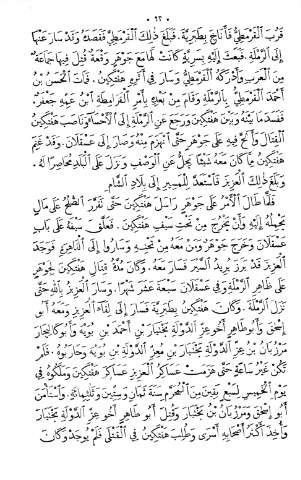 ٦٣
قرب القرمطي فاناخ بطبرية. فبلغ ذلك القرمطي فقصده وقد سار عنها
الى الرملة. فبعث اليه بسرية كانت لها مع جوهر وقعة قتل فيها جماعة
من العرب وادركه القرمطي وسار في اثره هفتكين. فمات الحسن بن
احمد القرمطي بالرملة وقام من بعده بامر القرامطة ابن عمه جعفر.
ففسد ما بينه وبين هفتكين ورجع عن الرملة الى الاحساء وناصب هفتكين
القتال والح فيه على جوهر حتى انهزم منه وسار الى عسقلان. وقد غنم
هفتكين مما كان معه شيئا يجل عن الوصف ونزل على البلد محاصرا له.
وبلغ ذلك العزيز فاستعد للمسير الى بلاد الشام
فلما طال الامر على جوهر راسل هفتكين حتى تقرر الصلح على مال
يحمله اليه وان يخرج من تحت سيف هفتكين. فعلق سيفه على باب
عسقلان وخرج جوهر ومن معه من تحته وساروا الى القاهرة فوجد
العزيز قد برز يريد السير فسار معه. وكان مدة قتال هفتكين لجوهر
على ظاهر الرملة وفي عسقلان سبعة عشر شهرا. وسار العزيز بالله حتى
نزل الرملة. وكان هفتكين بطبرية فسار الى لقاء العزيز ومعه ابو
اسحق وابو طاهر اخو عز الدولة بن بختيار بن احمد بن بويه وابو كاليجار
مرزبان بن عز الدولة بن بختيار بن معز الدولة بن بويه وحاربوه. فلم
تكن غير ساعة حتى هزمت عساكر العزيز عساكر هفتكين وملكوه في
يوم الخميس لسبع بقين من المحرم سنة ثمان وستين وثلثمائة. واستامن
ابو اسحق ومرزبان بن بختيار وقتل ابو طاهر اخو عز الدولة بن بختيار
واخذ اكثر اصحابه اسرى وطلب هفتكين في القتلى فلم يوجد وكان